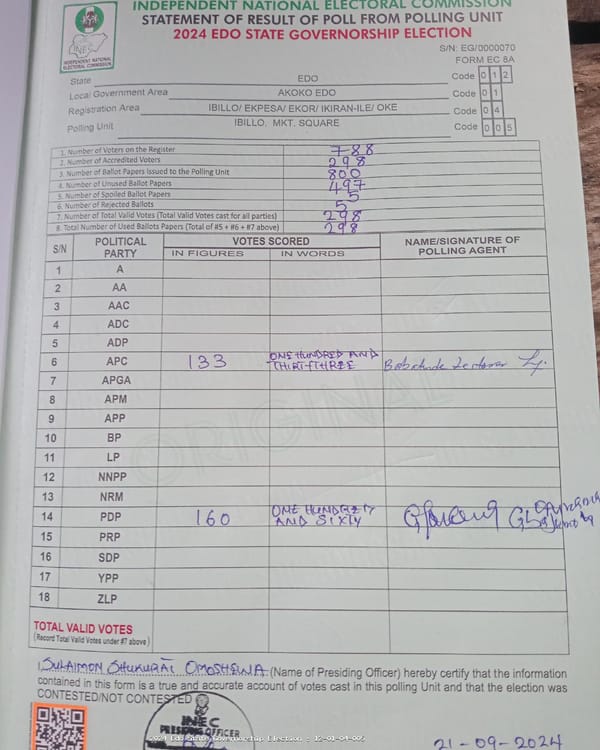 INDEPENDENT NATIONAL ELECTORAL COMMISSION
STATEMENT OF RESULT OF POLL FROM POLLING UNIT
2024 EDO STATE GOVERNORSHIP ELECTION
INEC
INDEPENDENT NATIONAL ELECTORAL COMMISSION
S/N: EG/0000070
FORM EC 8A
State EDO Code 0 1 2
Local Government Area AKOKO EDO Code 0 1
Registration Area IBILLO/ EKPESA/ EKOR/ IKIRAN-ILE/ OKE Code 0 4
Polling Unit IBILLO, MKT. SQUARE Code 0 0 5
1. Number of Voters on the Register 788
2. Number of Accredited Voters 298
3. Number of Ballot Papers Issued to the Polling Unit 800
4. Number of Unused Ballot Papers 497
5. Number of Spoiled Ballot Papers 5
6. Number of Rejected Ballots 5
7. Number of Total Valid Votes (Total Valid Votes cast for all parties) 298
8. Total Number of Used Ballots Papers (Total of #5 + #6 + #7 above) 298
S/N POLITICAL PARTY VOTES SCORED NAME/SIGNATURE OF POLLING AGENT
IN FIGURES IN WORDS
1 A
2 AA
3 AAC
4 ADC
5 ADP
6 APC 133 ONE HUNDRED AND THIRTYTHREE
7 APGA
8 APM
9 APP
10 BP
11 LP
12 NNPP
13 NRM
14 PDP 160 ONE HUNDRED AND SIXTY
15 PRP
16 SDP
17 YPP
18 ZLP
ORIGINAL
TOTAL VALID VOTES
(Record Total Valid Votes under #7 above)
I SULAIMON SHUKURAT OMOSHEWA (Name of Presiding Officer) hereby certify that the information
contained in this form is a true and accurate account of votes cast in this polling Unit and that the election was
CONTESTED/NOT CONTESTED
INEC
PRESIDING OFFICER
2024 Edo State Governorship Election : 12-01-04-005
21-09-2024